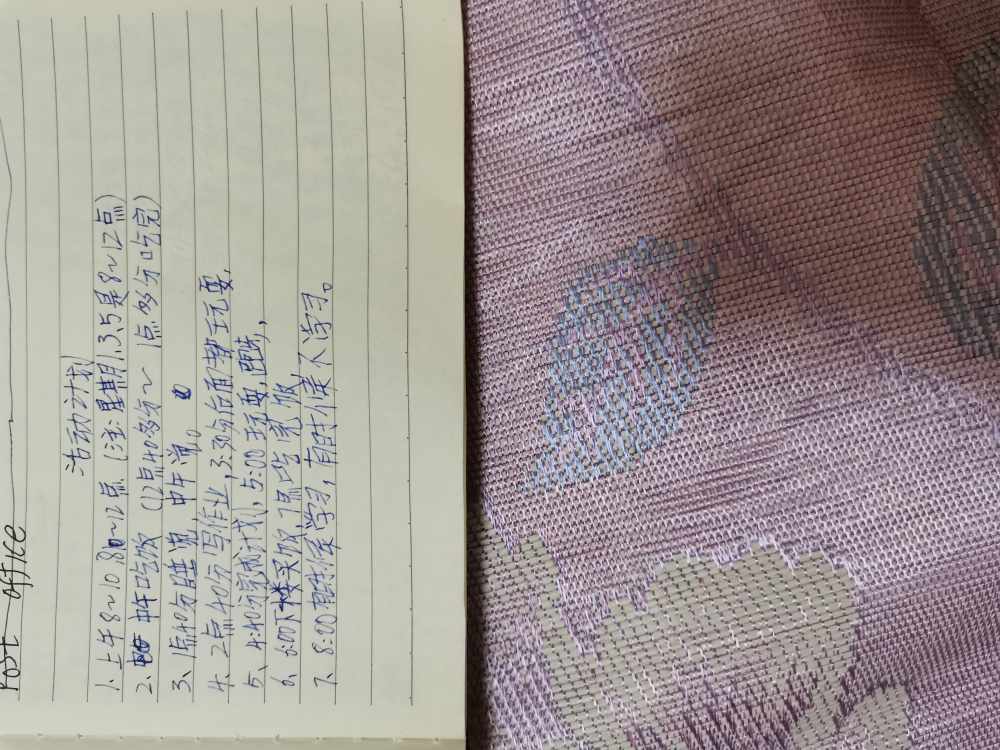 Post office
活动计划
1. 上午8~10.8~12点 (注:星期1.3.5是8~12点)
2. 中午吃饭 (12点40多分~1点多分吃完)
3、1点40分睡 中午
4、2点40分写作业,3:30分 玩耍.
5、4:40分完成计划、5:00玩耍,跑步,
6、6:00下楼买饭,7点吃完饭,
7、8:00 学习,有时候不学习。